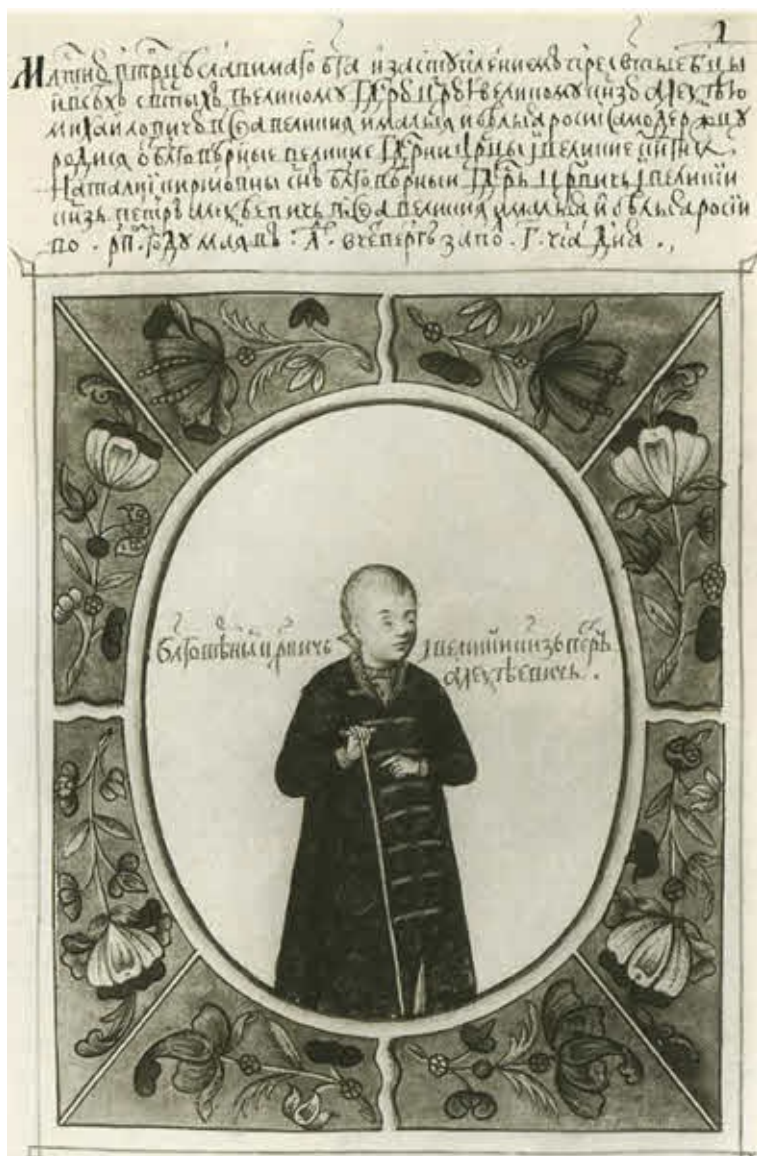 2
Млтию в̾ трцѣ славимаго бга и заступлениемъ пресвтые бцы
и всѣхъ свтыхъ великому гдрю црю и великому кнзю алеѯѣю
михаиловичю всеа великия и малыя и бѣлыя росиі самодержцу
родися ѡ благовѣрные великие гдрни црцы і великие кнгни
Наталиі кириловны снъ блговѣрныи гдрь црвичь і великиі
кнзь петръ алеѯѣевичь всеа великия и малыя и бѣлыя росиі
во . рп҃ . году маия въ : л҃ . в четвергъ за по . г҃ . часа дня .,
блговѣрныи црвичь і великиі кнзь петръ
алеѯѣевичь .